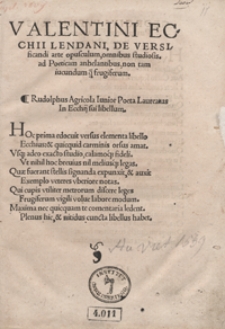 VALENTINI EC
CHII LENDANI, DE VERSI
ficandi arte opusculum, omnibus studiosis,
ad Poeticam anhelantibus, non tam
iucundum q̃ frugiferum.
¶ Rudolphus Agricola Iunior Poeta Laureatus
In Ecchij sui libellum.
HOc prima edocuit versus elementa libello
Ecchius: & quicquid carminis versus amat.
Vsq; adeo exacto studio, calamoq; fideli.
Vt nihil hoc breuius nil meliusq; legas.
Quæ fuerant stellis signanda expunxit, & auxit
Exemplo veteres vberiore notas.
Qui cupis vtiliter metrorum discere leges
Frugiferum vigili volue labore
Maxima nec quicquam te comentaria ledent.
Plenus hic, & nitidus cuncta libellus habet.
4.011